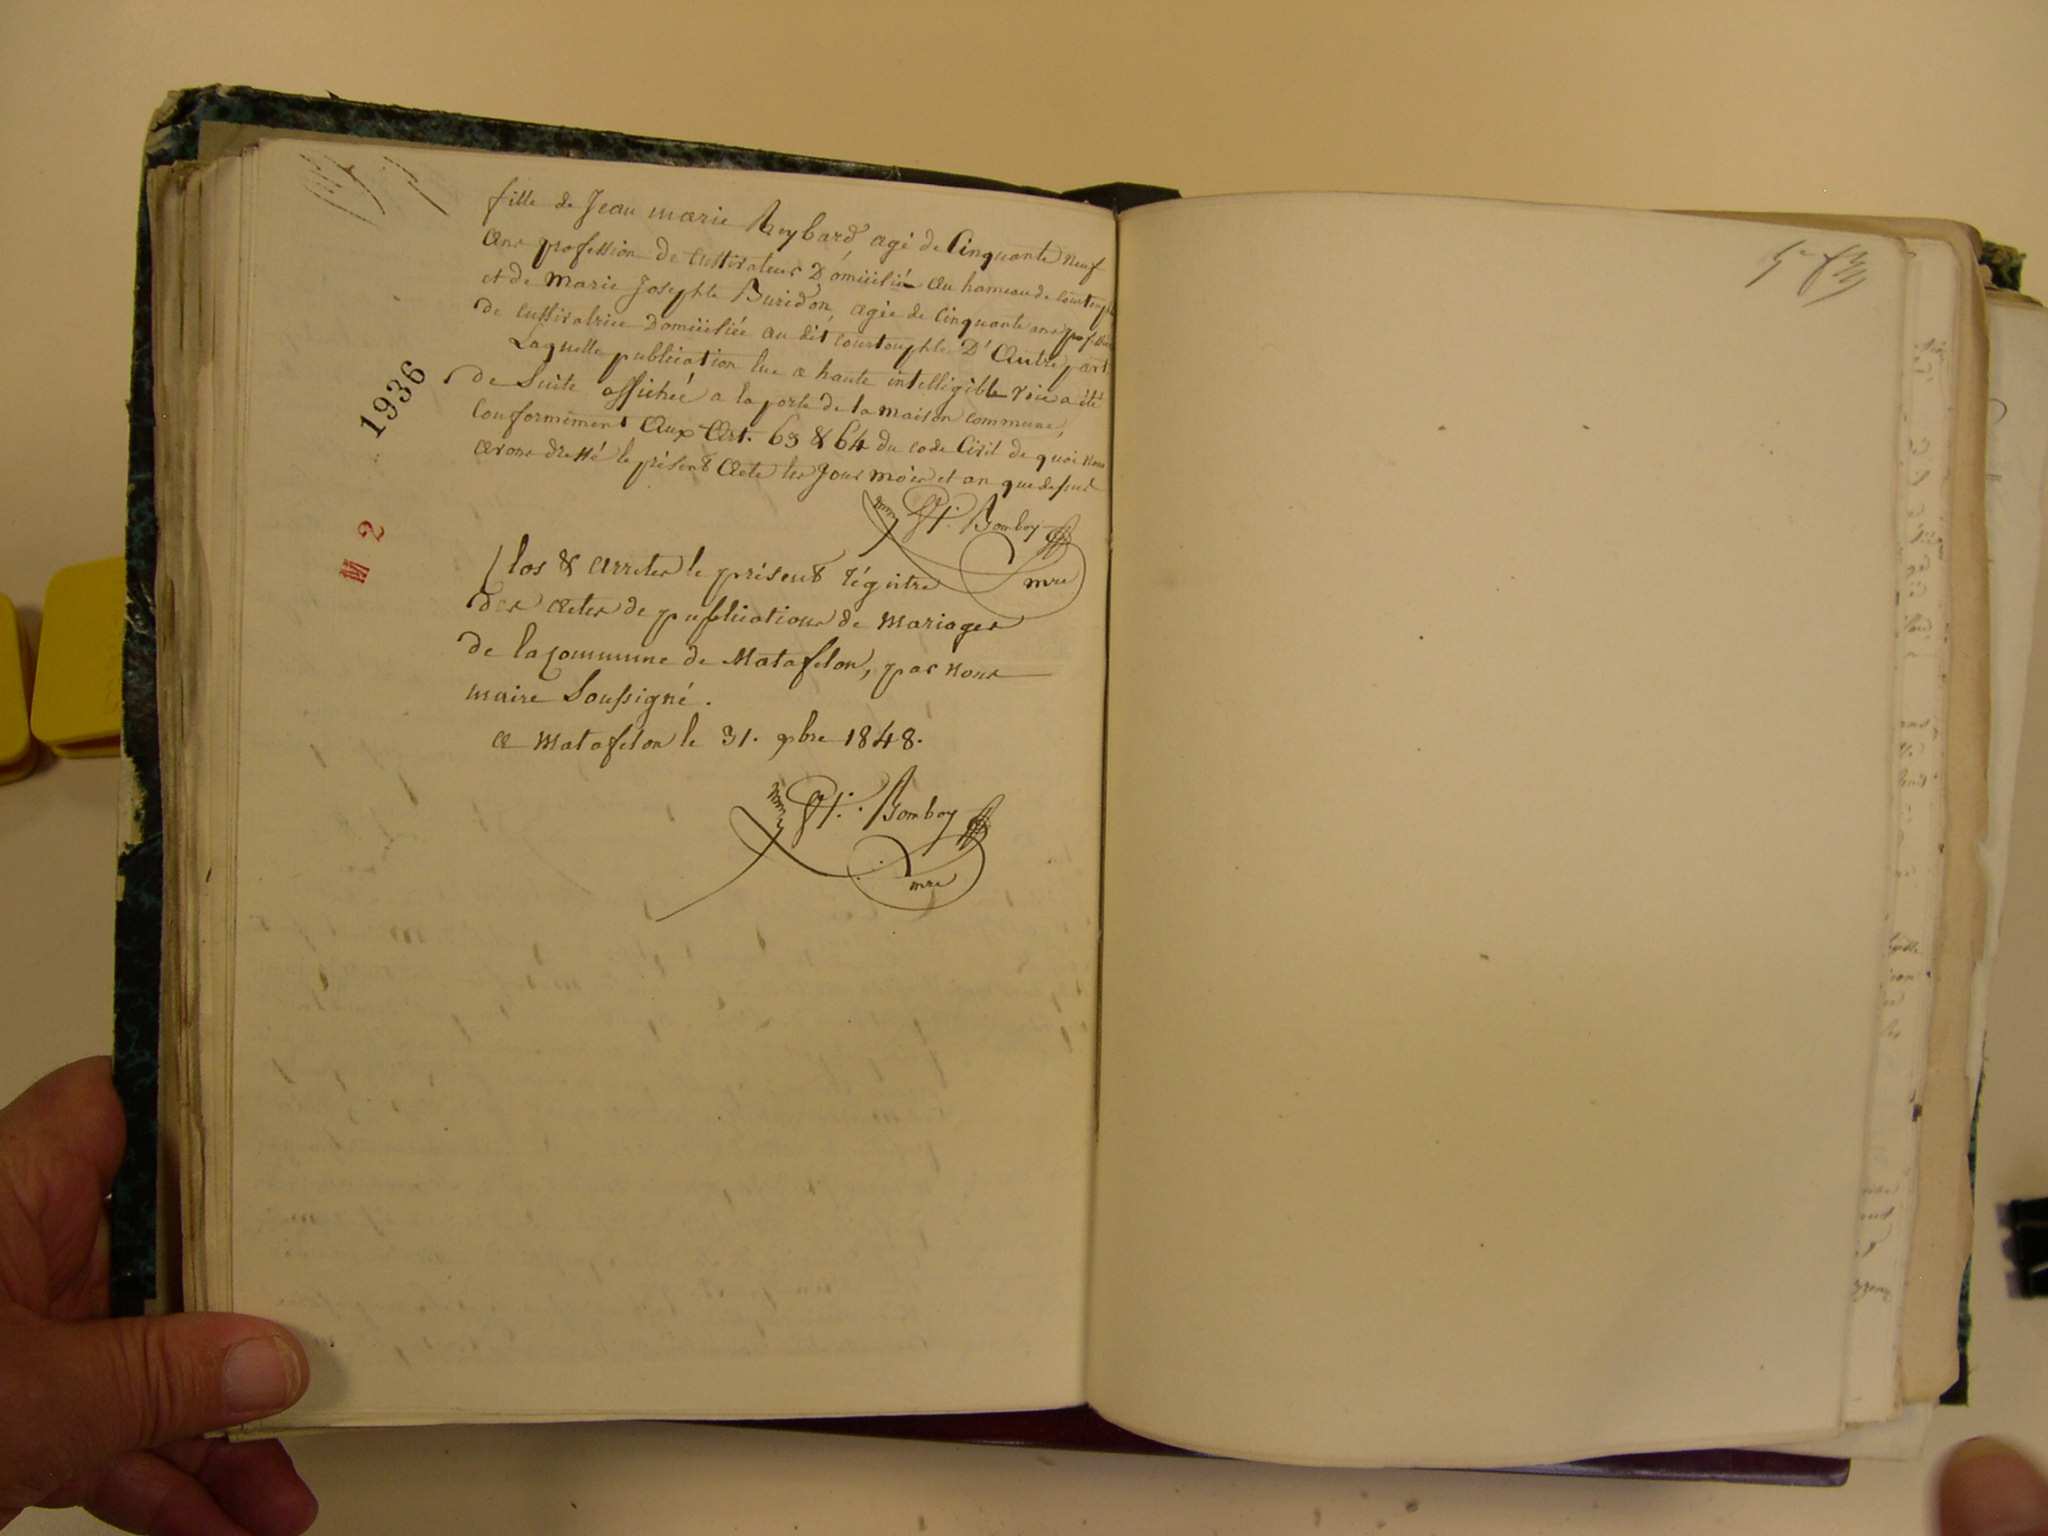 fille de Jean marie Reybard agé de Cinquante neuf
ans profession de Cultivateur Domicilié au hameau de Courtouphle
et de Marie Josephte Buridon, agée de Cinquante ans profession
de cultivatrice Domiciliée au dit Courtouphle D'Autre part.
Laquelle publication lue a haute intelligible voix a été
de Suite affichée a la porte de la maison commune,
Conformément Aux Art. 63 & 64 du code Civil de quoi nous
avons dressé le présent Acte les Jour mois et an que dessus
Bomboy
mre
1936
M 2
Clos & arreter le présent régistre
des actes de publications de mariages
de la commune de Matafelon, par nous
maire Soussigné.
a Matafelon le 31. xbre 1848.
Bomboy
mre